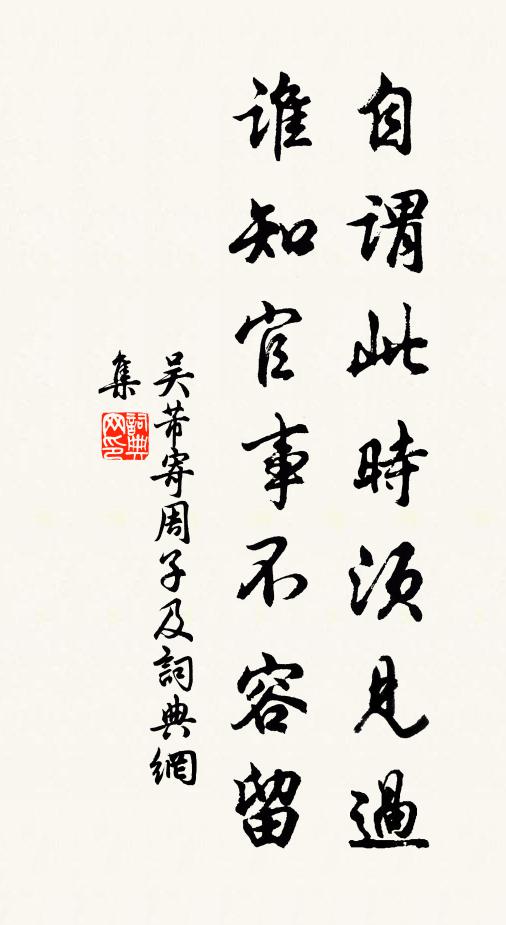 自謂此時須見過
誰知官事不容留
吴芾寄周子及詞典網
集
詞典
网印